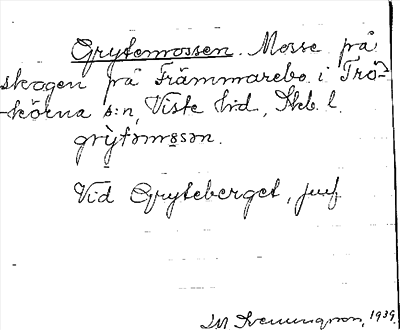 Grytemossen. Mosse på
skogen på Främmarebo i Trö-
-körna s:n, Viste hd, Skb. l.
grỳtəmɷsən.
Vid Gryteberget, jmf.
1939.